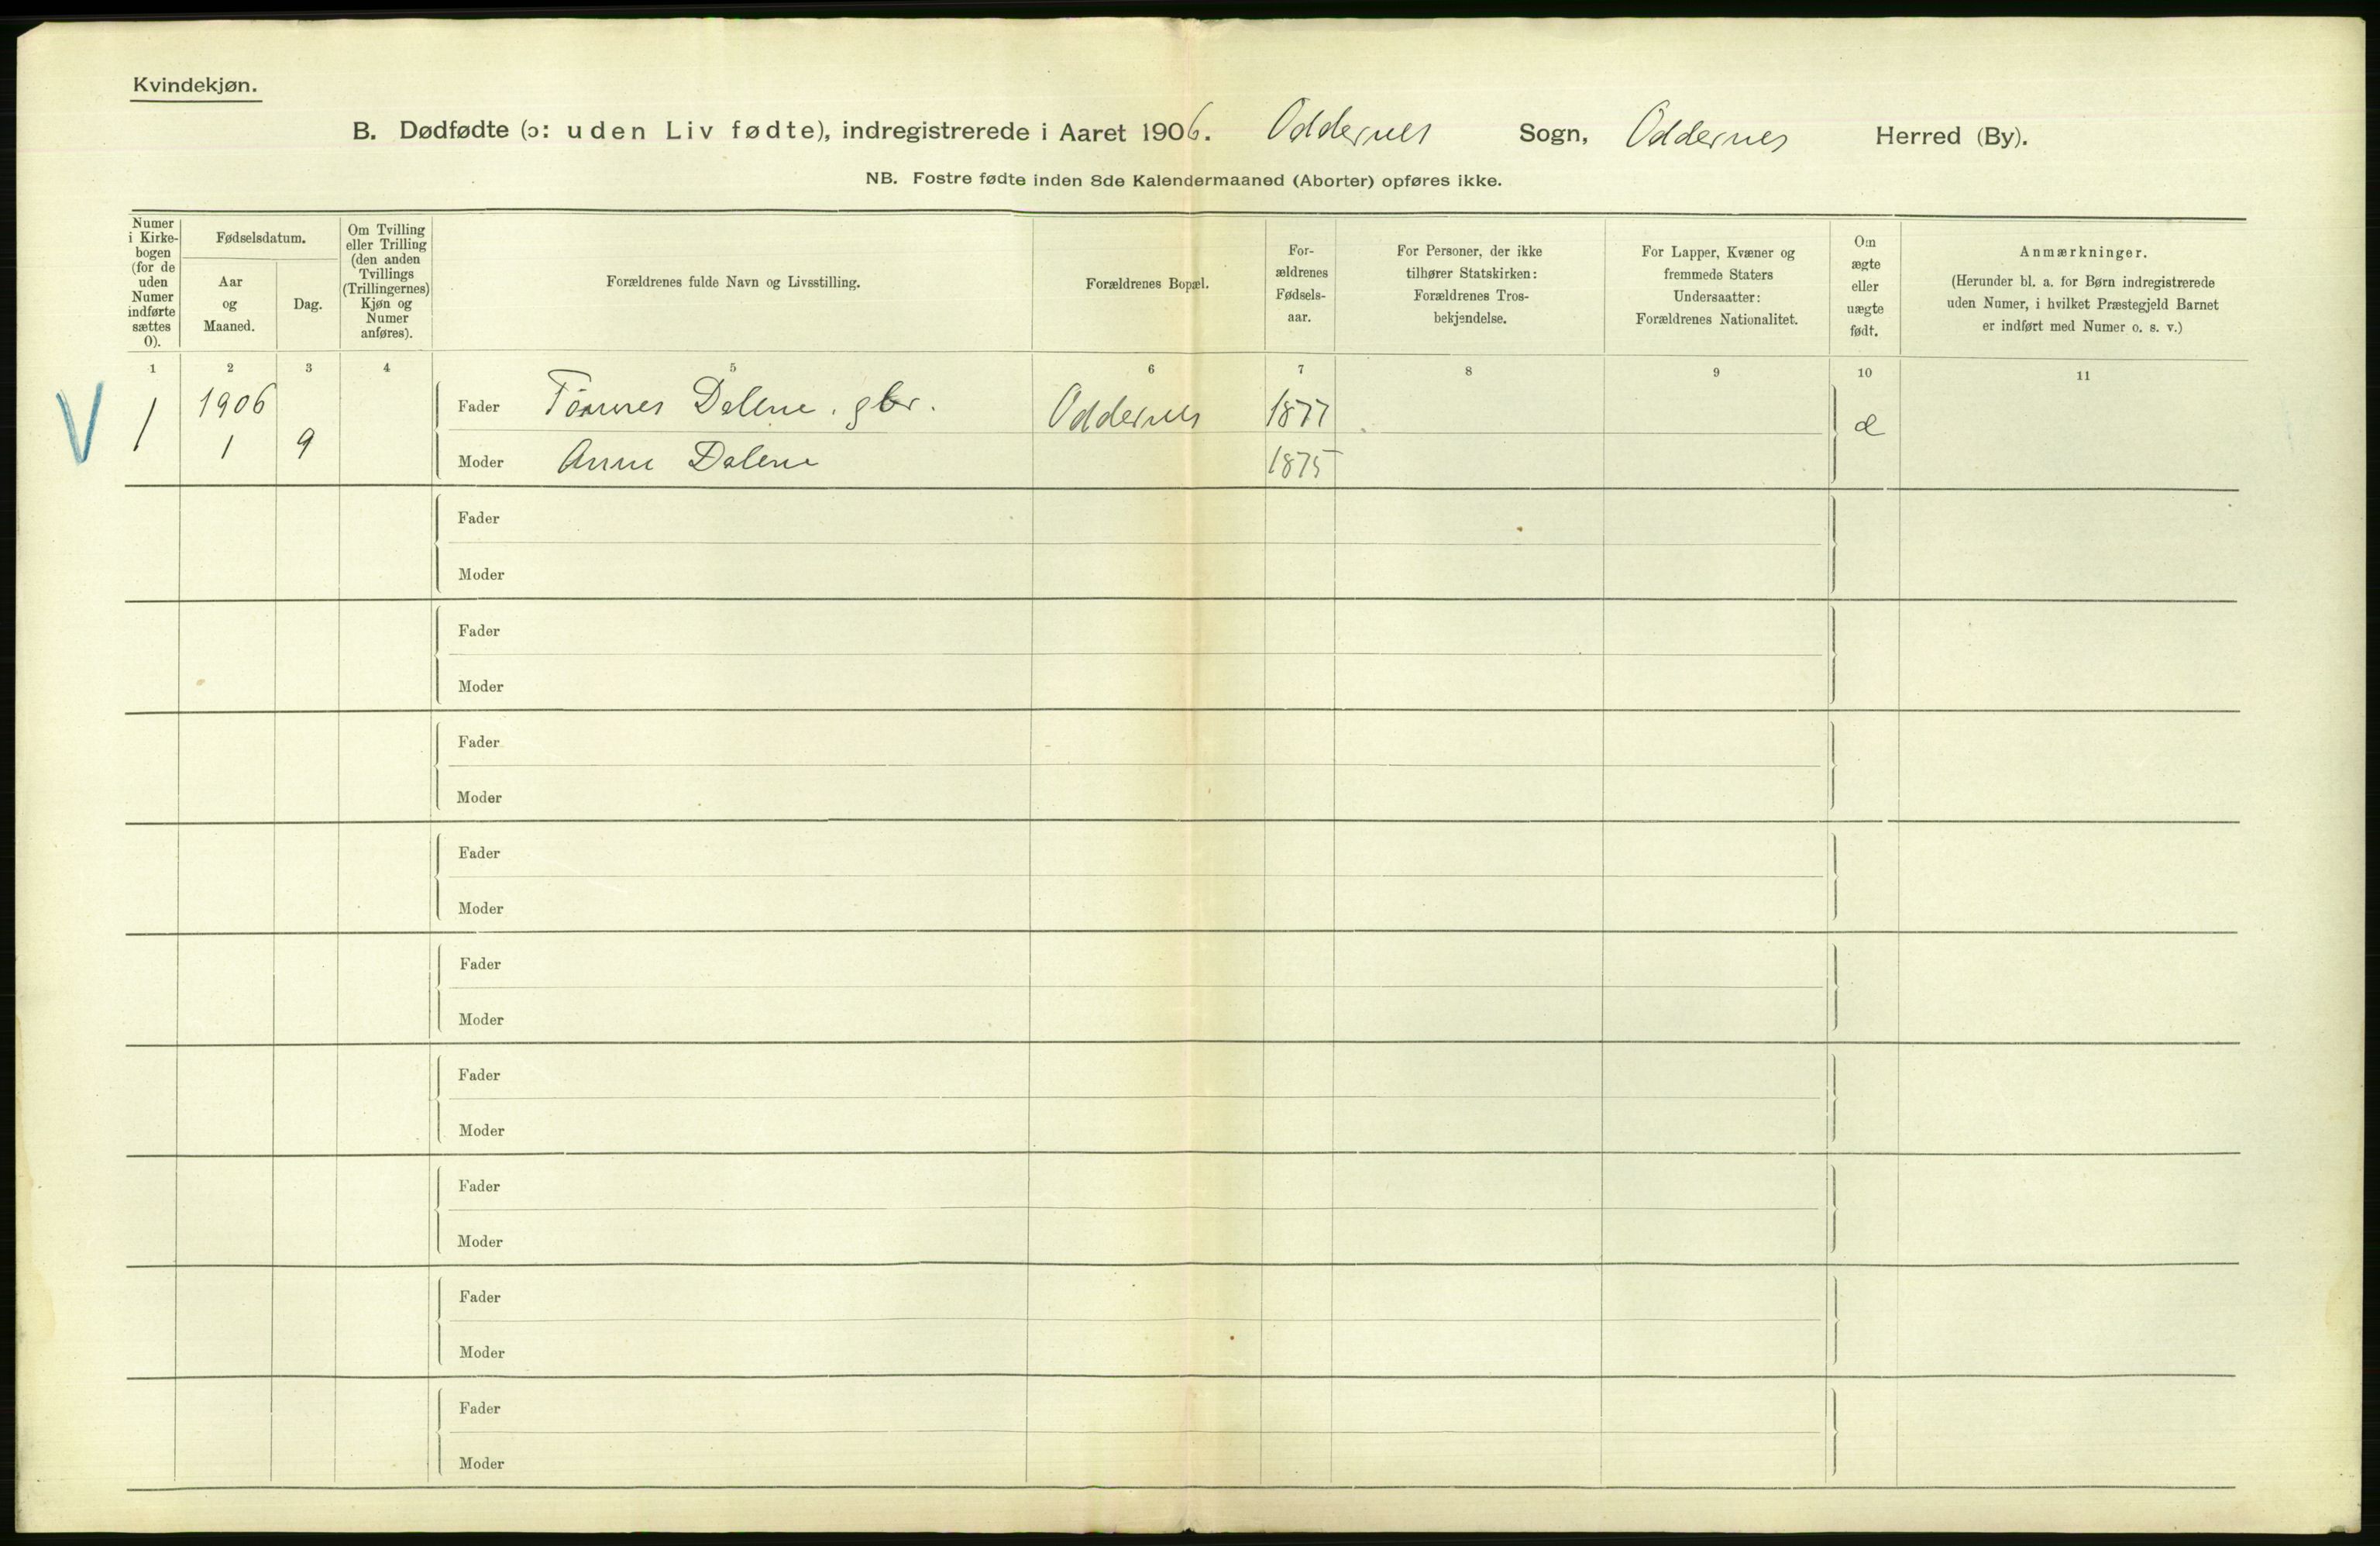 Kvindekjøn.
B. Dødfødte (ɔ: uden Liv fødte), indregistrerede i Aaret 1906. Oddernes Sogn, Oddernes Herred (By).
NB. Fostre fødte inden 8de Kalendermaaned (Aborter) opføres ikke.
Numer
i Kirke-
bogen
(for de
uden
Numer
indførte
sættes
0).
Fødselsdatum.
Aar
og
Maaned.
Dag.
Om Tvilling
eller Trilling
(den anden
Tvillings
(Trillingernes)
Kjøn og
Numer
anføres).
Forældrenes fulde Navn og Livsstilling.
Forældrenes Bopæl.
For-
ældrenes
Fødsels-
aar.
For Personer, der ikke
tilhører Statskirken:
Forældrenes Tros-
bekjendelse.
For Lapper, Kvæner og
fremmede Staters
Undersaatter:
Forældrenes Nationalitet.
Om
ægte
eller
uægte
født.
Anmærkninger.
(Herunder bl. a. for Børn indregistrerede
uden Numer, i hvilket Præstegjeld Barnet
er indført med Numer o. s. v.)
1 2 3 4 5 6 7 8 9 10 11
V 1 1906 Fader Tønnes Dalene, gbr. Oddernes 1877 æ
1 9 Moder Anne Dalene 1875
Fader
Moder
Fader
Moder
Fader
Moder
Fader
Moder
Fader
Moder
Fader
Moder
Fader
Moder
Fader
Moder
Fader
Moder